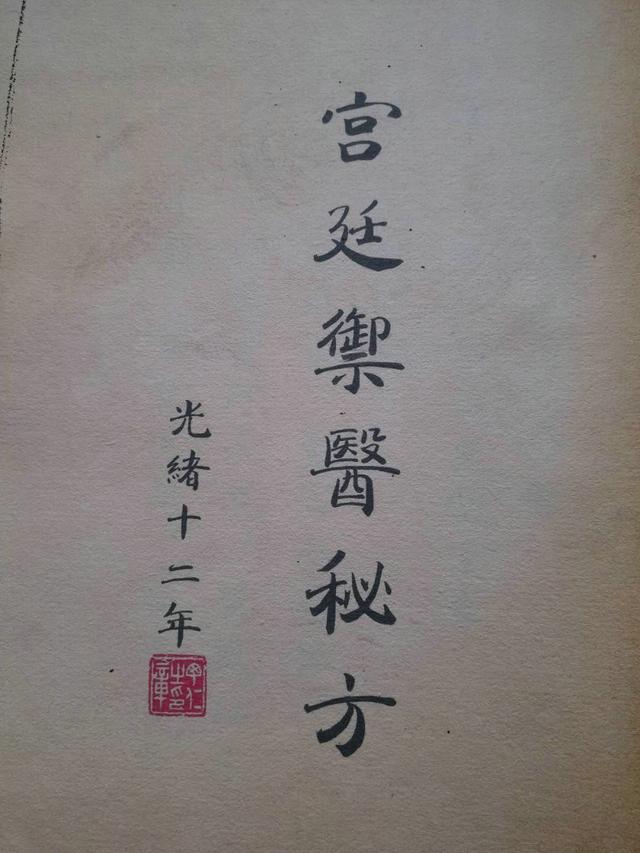 宫廷禦醫秘方
光緒十二年